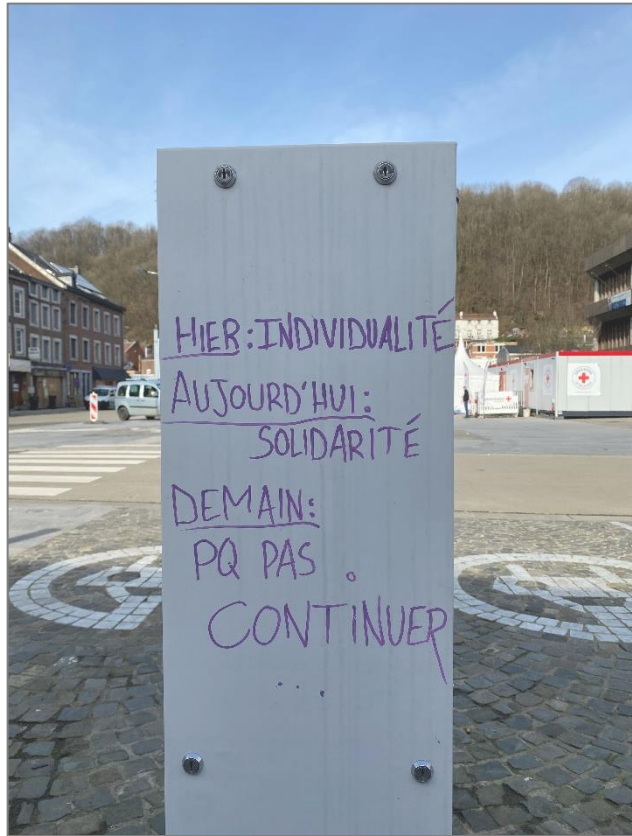 HIER: INDIVIDUALITÉ
AUJOURD'HUI:
SOLIDARITÉ
DEMAIN:
PQ PAS
CONTINUER
...